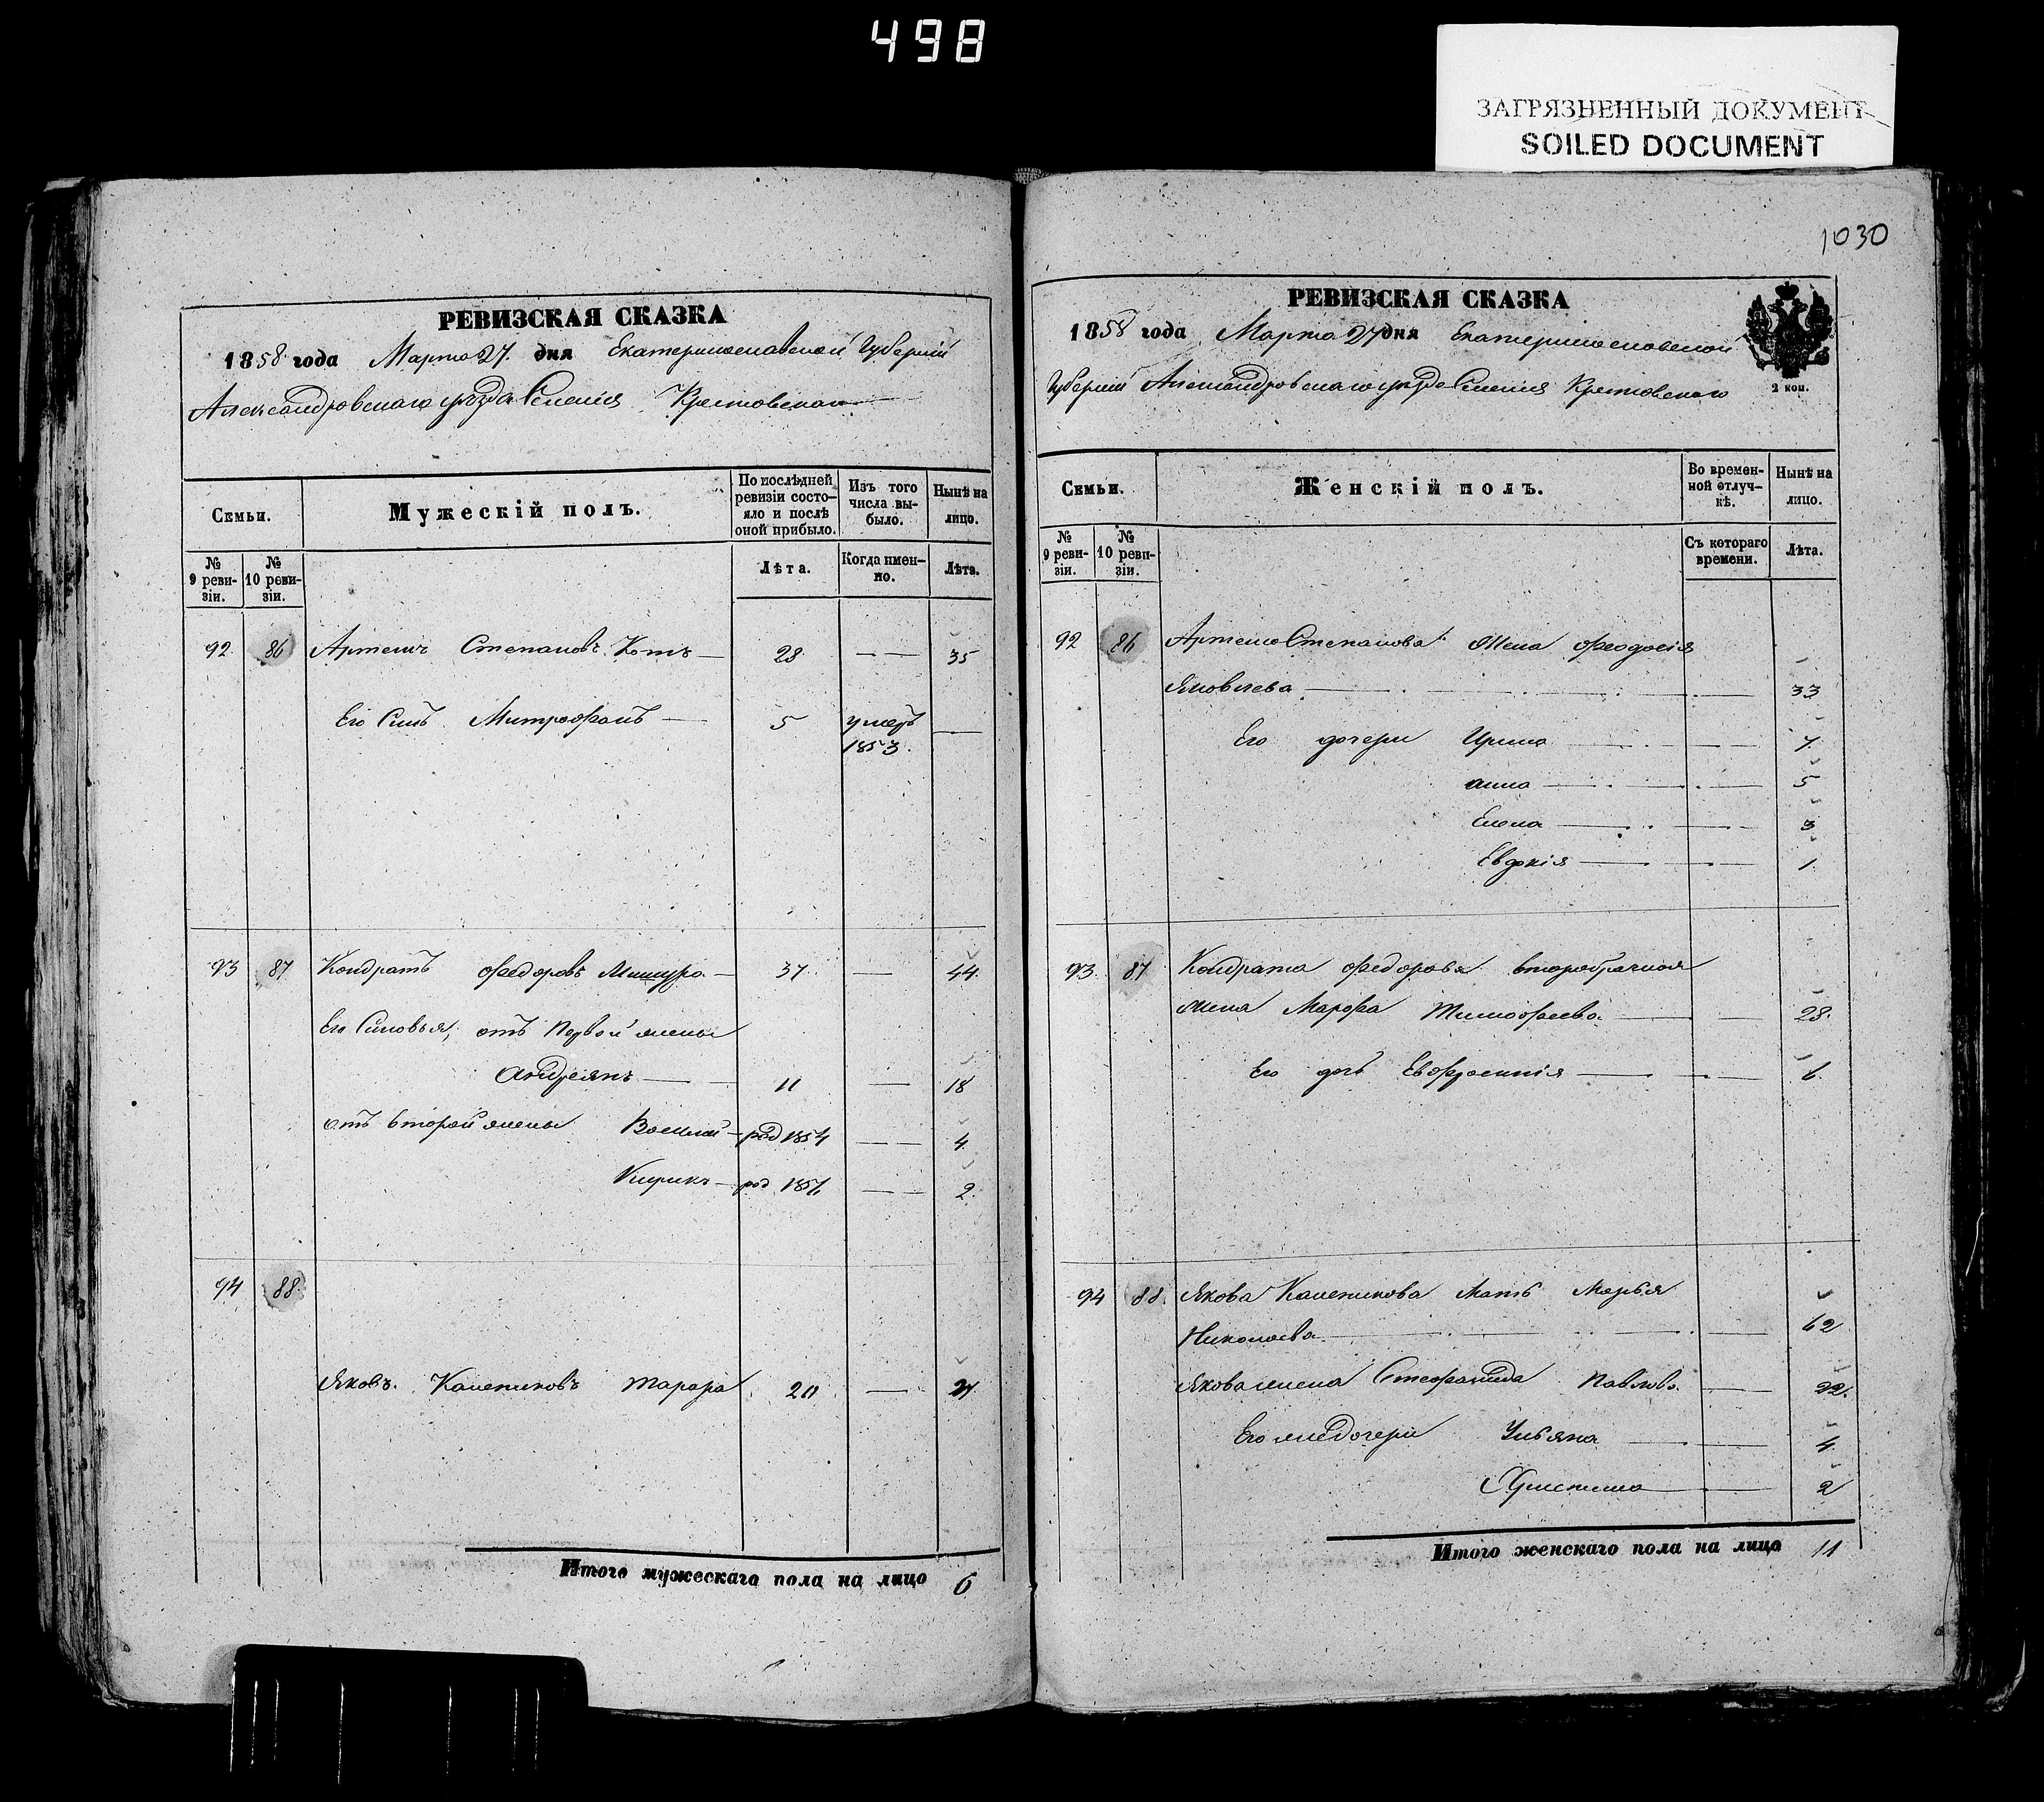 498
ЗАГРЯЗНЕННЫЙ ДОКУМЕНТ
SOILED DOCUMENT
РЕВИЗСКАЯ СКАЗКА
1858 года Марта 27 дня Екатеринославской Губернiи
Александровскаго уѣзда Селенiя Крестовскаго
Семьи.
Мужескiй полъ.
По послѣдней ревизiи состояло и послѣ оной прибыло.
Изъ того числа выбыло.
Нынѣ на лицо.
№ 9 ревизiи.
№ 10 ревизiи.
Лѣта.
Когда именно.
Лѣта.
92 86 Артемъ Степановъ Котъ — 28 — — 35
Его Сынъ Митрофанъ — 5 умеръ 1853. —
93 87 Кондратъ Федоровъ Мишура — 37 — 44.
Его Сыновья, отъ Первой жены
Андреянъ — 11 — 18
отъ второй жены Василий — род 1854 — 4.
Кирикъ — род 1856 — 2.
94 88
Яковъ Калениковъ Тарара 20 — 27
Итого мужескаго пола на лицо 6
1030
РЕВИЗСКАЯ СКАЗКА
1858 года Марта 27 дня Екатеринославской
Губернiи Александровскаго уѣзда Селенiя Крестовскаго
2 коп.
Семьи.
Женскiй полъ.
Во временной отлучкѣ.
Нынѣ на лицо.
№ 9 ревизiи.
№ 10 ревизiи.
Съ котораго времени.
Лѣта.
92 86 Артема Степанова Жена Феодосiя
Яковлева — — 33
Его дочери Ирина — 7.
анна — 5
Елена — 3
Евдокiя — 1.
93. 87 Кондрата Федорова второбрачная
жена Марфа Тимофеева — 28.
Его дочь Евфросинiя — 6.
94 88. Якова Каленикова Мать Марья
Николаева — 62
Якова жена Стефанида Павлова — 22.
Его же дочери Ульяна — 4.
Христина — 2
Итого женскаго пола на лицо 11